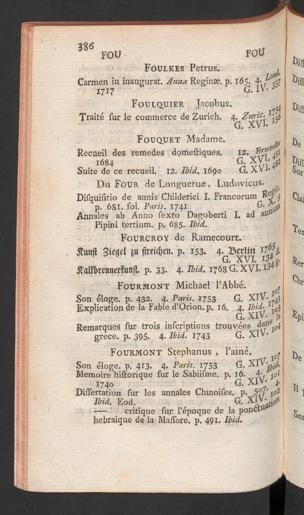 386
FOU FOU
FOULKES Petrus.
Carmen in inaugurat. Annæ Reginæ. p. 165. 4. Lond.
1717 G. IV. 557
FOULQUIER Jacobus.
Traité sur le commerce de Zurich. 4. Zuric. 1754
G. XVI. 156
FOUQUET Madame.
Recueil des remedes domestiques. 12.
1684 G. XVI.
Suite de ce recueil. 12. Ibid. 1690 G. XVI.
DU FOUR de Longuerue, Ludovicus.
Disquisitio de annis Childerici I. Francorum Regis.
p. 681. fol. Paris. 1741 G. X. 5
Annales ab Anno sexto Dagoberti I. ad annum
Pipini tertium. p. 685. Ibid.
FOURCROY de Ramecourt.
Kunst Ziegel zu streichen. p. 153. 4. Berlin 1765
G. XVI. 134
Kalkbrennerkunst. p. 33. 4. Ibid. 1768 G. XVI. 134
FOURMONT Michael l'Abbé.
Son éloge. p. 432. 4. Paris. 1753 G. XIV. 107
Explication de la Fable d'Orion. p. 16. 4. Ibid. 1745
G. XIV. 103
Remarques sur trois inscriptions trouvées dans la
grece. p. 395. 4. Ibid. 1743 G. XIV. 104
FOURMONT Stephanus, l'ainé.
Son éloge. p. 413. 4. Paris. 1753 G. XIV. 107
Memoire historique sur le Sabiisme. p. 16. 4. Ibid.
1740 G. XIV. 101
Dissertation sur les annales Chinoises. p. 507. 4.
Ibid. Eod. G. XIV. 102
— critique sur l'époque de la ponctuation
hebraique de la Massore. p. 491. Ibid.